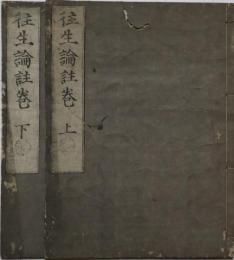 往生論註巻 上
往生論註巻 下